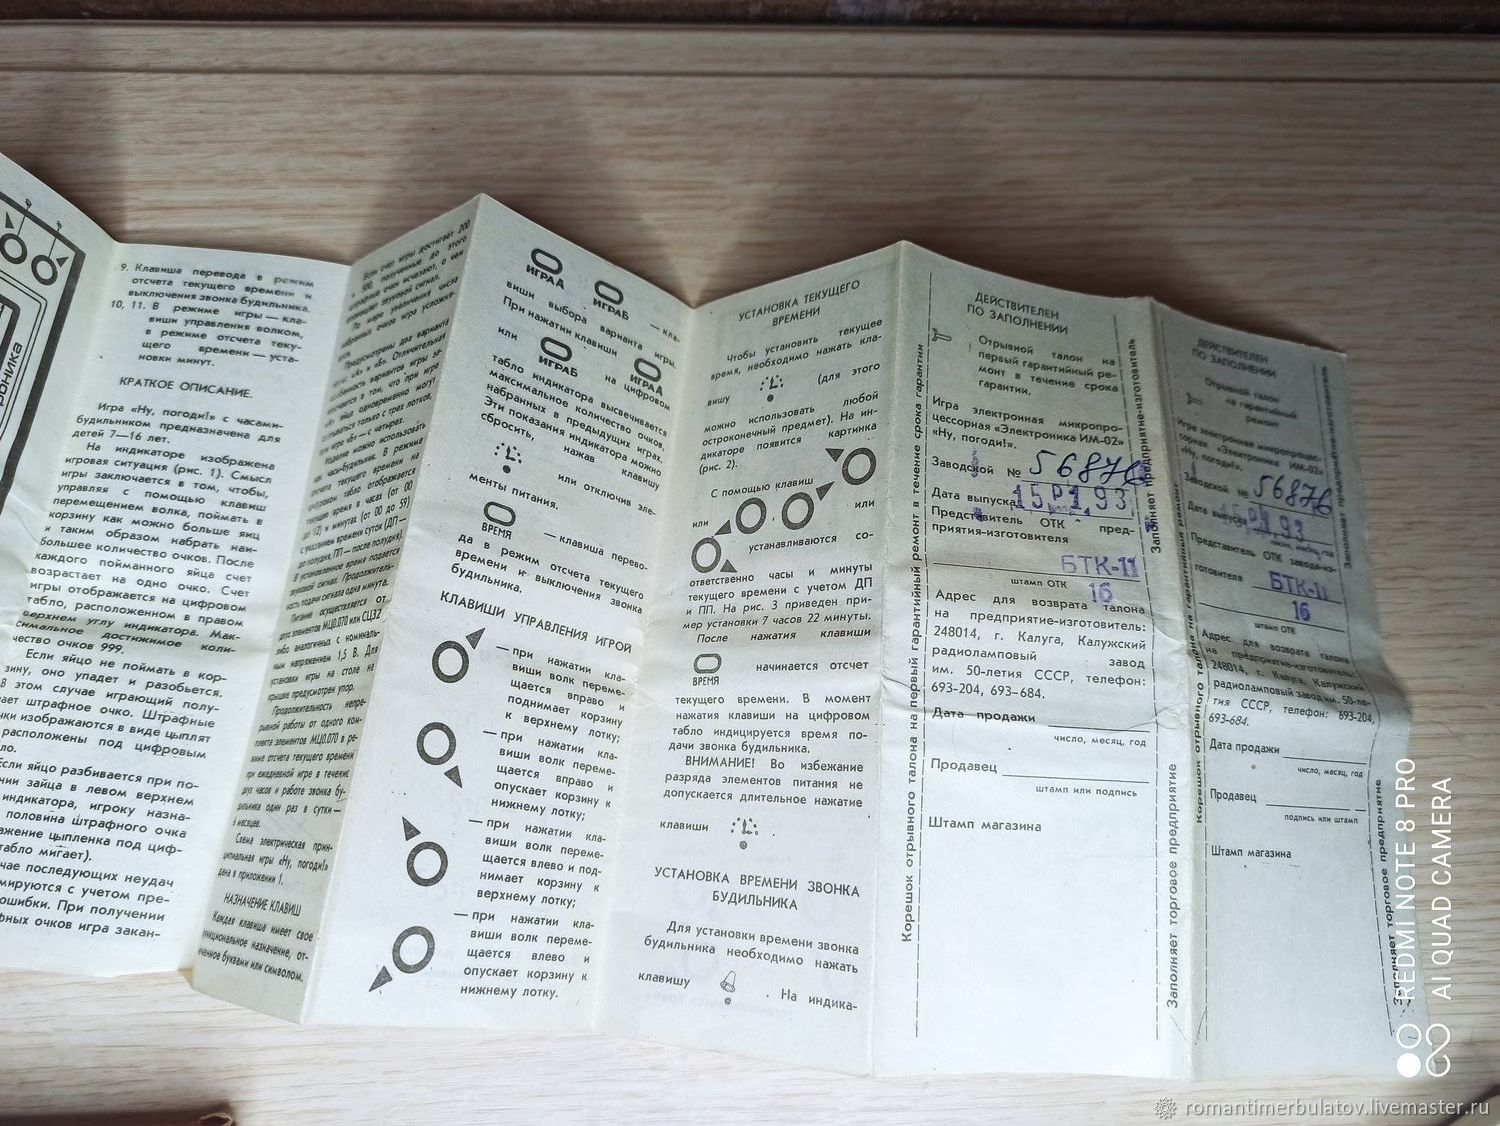 роника
9. Клавиша перевода в режим
отсчета текущего времени и
выключения звонка будильника.
10, 11. В режиме игры — кла-
виши управления волком,
в режиме отсчета теку-
щего времени — уста-
новки минут.
КРАТКОЕ ОПИСАНИЕ.
Игра «Ну, погоди!» с часами-
будильником предназначена для
детей 7—16 лет.
На индикаторе изображена
игровая ситуация (рис. 1). Смысл
игры заключается в том, чтобы,
управляя с помощью клавиш
перемещением волка, поймать в
корзину как можно больше яиц
и таким образом набрать наи-
большее количество очков. После
каждого пойманного яйца счет
возрастает на одно очко. Счет
игры отображается на цифровом
табло, расположенном в правом
верхнем углу индикатора. Мак-
симальное достижимое коли-
чество очков 999.
Если яйцо не поймать в кор-
зину, оно упадет и разобьется.
В этом случае играющий полу-
чает штрафное очко. Штрафные
очки изображаются в виде цыплят
расположены под цифровым
ло.
Если яйцо разбивается при по-
нии зайца в левом верхнем
индикатора, игроку назна-
половина штрафного очка
ажение цыпленка под циф-
табло мигает).
чае последующих неудач
мируются с учетом пре-
ошибки. При получении
фных очков игра закан-
Если счет игры достигает 200
и 500, полученные до этого
штрафные очки исчезают, о чем
оповещает звуковой сигнал.
По мере увеличения числа
набранных очков игра усложня-
ется.
Предусмотрены два варианта
игры: «А» и «Б». Отличительная
особенность вариантов игры за-
ключается в том, что при игре
«А» яйца одновременно могут
скатываться только с трех лотков,
при игре «Б» — с четырех.
Изделие можно использовать
как часы-будильник. В режиме
отсчета текущего времени на
цифровом табло отображается
текущее время в часах (от 00
до 12) и минутах (от 00 до 59)
с указанием времени суток (ДП —
до полудня, ПП — после полудня).
В установленное время подается
звуковой сигнал. Продолжитель-
ность подачи сигнала одна минута.
Питание осуществляется от
двух элементов МЦ0,070 или СЦ32
либо аналогичных с номиналь-
ным напряжением 1,5 В. Для
установки игры на столе на
крышке предусмотрен упор.
Продолжительность непре-
рывной работы от одного ком-
плекта элементов МЦ0,070 в ре-
жиме отсчета текущего времени
при ежедневной игре в течение
двух часов и работе звонка бу-
дильника один раз в сутки —
6 месяцев.
Схема электрическая прин-
ципиальная игры «Ну, погоди!»
дана в приложении 1.
НАЗНАЧЕНИЕ КЛАВИШ
Каждая клавиша имеет свое
функциональное назначение, от-
меченное буквами или символом.
ИГРА А
ИГРА Б
— кла-
виши выбора варианта игры.
При нажатии клавиши
ИГРА А
или
ИГРА Б
на цифровом
табло индикатора высвечивается
максимальное количество очков,
набранных в предыдущих играх.
Эти показания индикатора можно
сбросить, нажав клавишу
или отключив эле-
менты питания.
ВРЕМЯ
— клавиша перево-
да в режим отсчета текущего
времени и выключения звонка
будильника.
КЛАВИШИ УПРАВЛЕНИЯ ИГРОЙ
— при нажатии кла-
виши волк переме-
щается вправо и
поднимает корзину
к верхнему лотку;
— при нажатии кла-
виши волк переме-
щается вправо и
опускает корзину к
нижнему лотку;
— при нажатии кла-
виши волк переме-
щается влево и под-
нимает корзину к
верхнему лотку;
— при нажатии кла-
виши волк переме-
щается влево и
опускает корзину к
нижнему лотку.
УСТАНОВКА ТЕКУЩЕГО
ВРЕМЕНИ
Чтобы установить текущее
время, необходимо нажать кла-
вишу (для этого
можно использовать любой
остроконечный предмет). На ин-
дикаторе появится картинка
(рис. 2).
С помощью клавиш
или , или
устанавливаются со-
ответственно часы и минуты
текущего времени с учетом ДП
и ПП. На рис. 3 приведен при-
мер установки 7 часов 22 минуты.
После нажатия клавиши
ВРЕМЯ
начинается отсчет
текущего времени. В момент
нажатия клавиши на цифровом
табло индицируется время по-
дачи звонка будильника.
ВНИМАНИЕ! Во избежание
разряда элементов питания не
допускается длительное нажатие
клавиши .
УСТАНОВКА ВРЕМЕНИ ЗВОНКА
БУДИЛЬНИКА
Для установки времени звонка
будильника необходимо нажать
клавишу . На индика-
Корешок отрывного талона на первый гарантийный ремонт в течение срока гарантии
ДЕЙСТВИТЕЛЕН
ПО ЗАПОЛНЕНИИ
Отрывной талон на
первый гарантийный ре-
монт в течение срока
гарантии.
Игра электронная микропро-
цессорная «Электроника ИМ-02»
«Ну, погоди!».
Заводской № 56876
Дата выпуска 15.01.93
Представитель ОТК пред-
приятия-изготовителя
БТК-11
штамп ОТК
16
Адрес для возврата талона
на предприятие-изготовитель:
248014, г. Калуга, Калужский
радиоламповый завод
им. 50-летия СССР, телефон:
693-204, 693-684.
Дата продажи
число, месяц, год
Продавец
штамп или подпись
Штамп магазина
Заполняет предприятие-изготовитель
Заполняет торговое предприятие
Корешок отрывного талона на гарантийный ремонт
ДЕЙСТВИТЕЛЕН
ПО ЗАПОЛНЕНИИ
Отрывной талон
на гарантийный
ремонт
Игра электронная микропроцес-
сорная «Электроника ИМ-02»
«Ну, погоди!».
Заводской № 56876
Дата выпуска 15.01.93
число, месяц, год
Представитель ОТК завода-из-
готовителя БТК-11
16
штамп ОТК
Адрес для возврата талона
на предприятие-изготовитель:
248014, г. Калуга, Калужский
радиоламповый завод им. 50-ле-
тия СССР, телефон: 693-204,
693-684.
Дата продажи
число, месяц, год
Продавец
подпись или штамп
Штамп магазина
Заполняет предприятие-изготовитель
Заполняет торговое предприятие
REDMI NOTE 8 PRO
AI QUAD CAMERA
romantimerbulatov.livemaster.ru